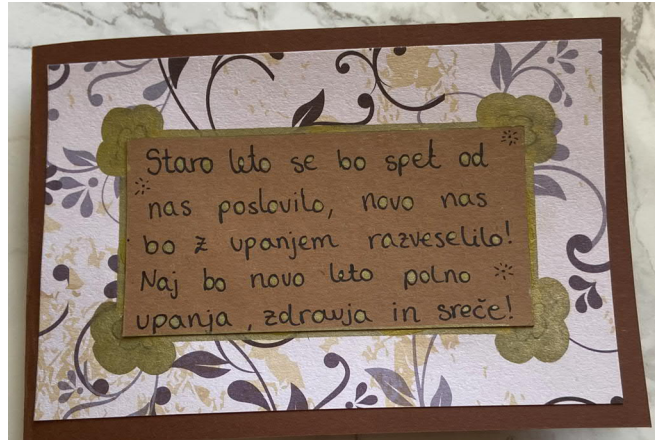 Staro leto se bo spet od
nas poslovilo, novo nas
bo z upanjem razveselilo!
Naj bo novo leto polno
upanja, zdravja in sreče!